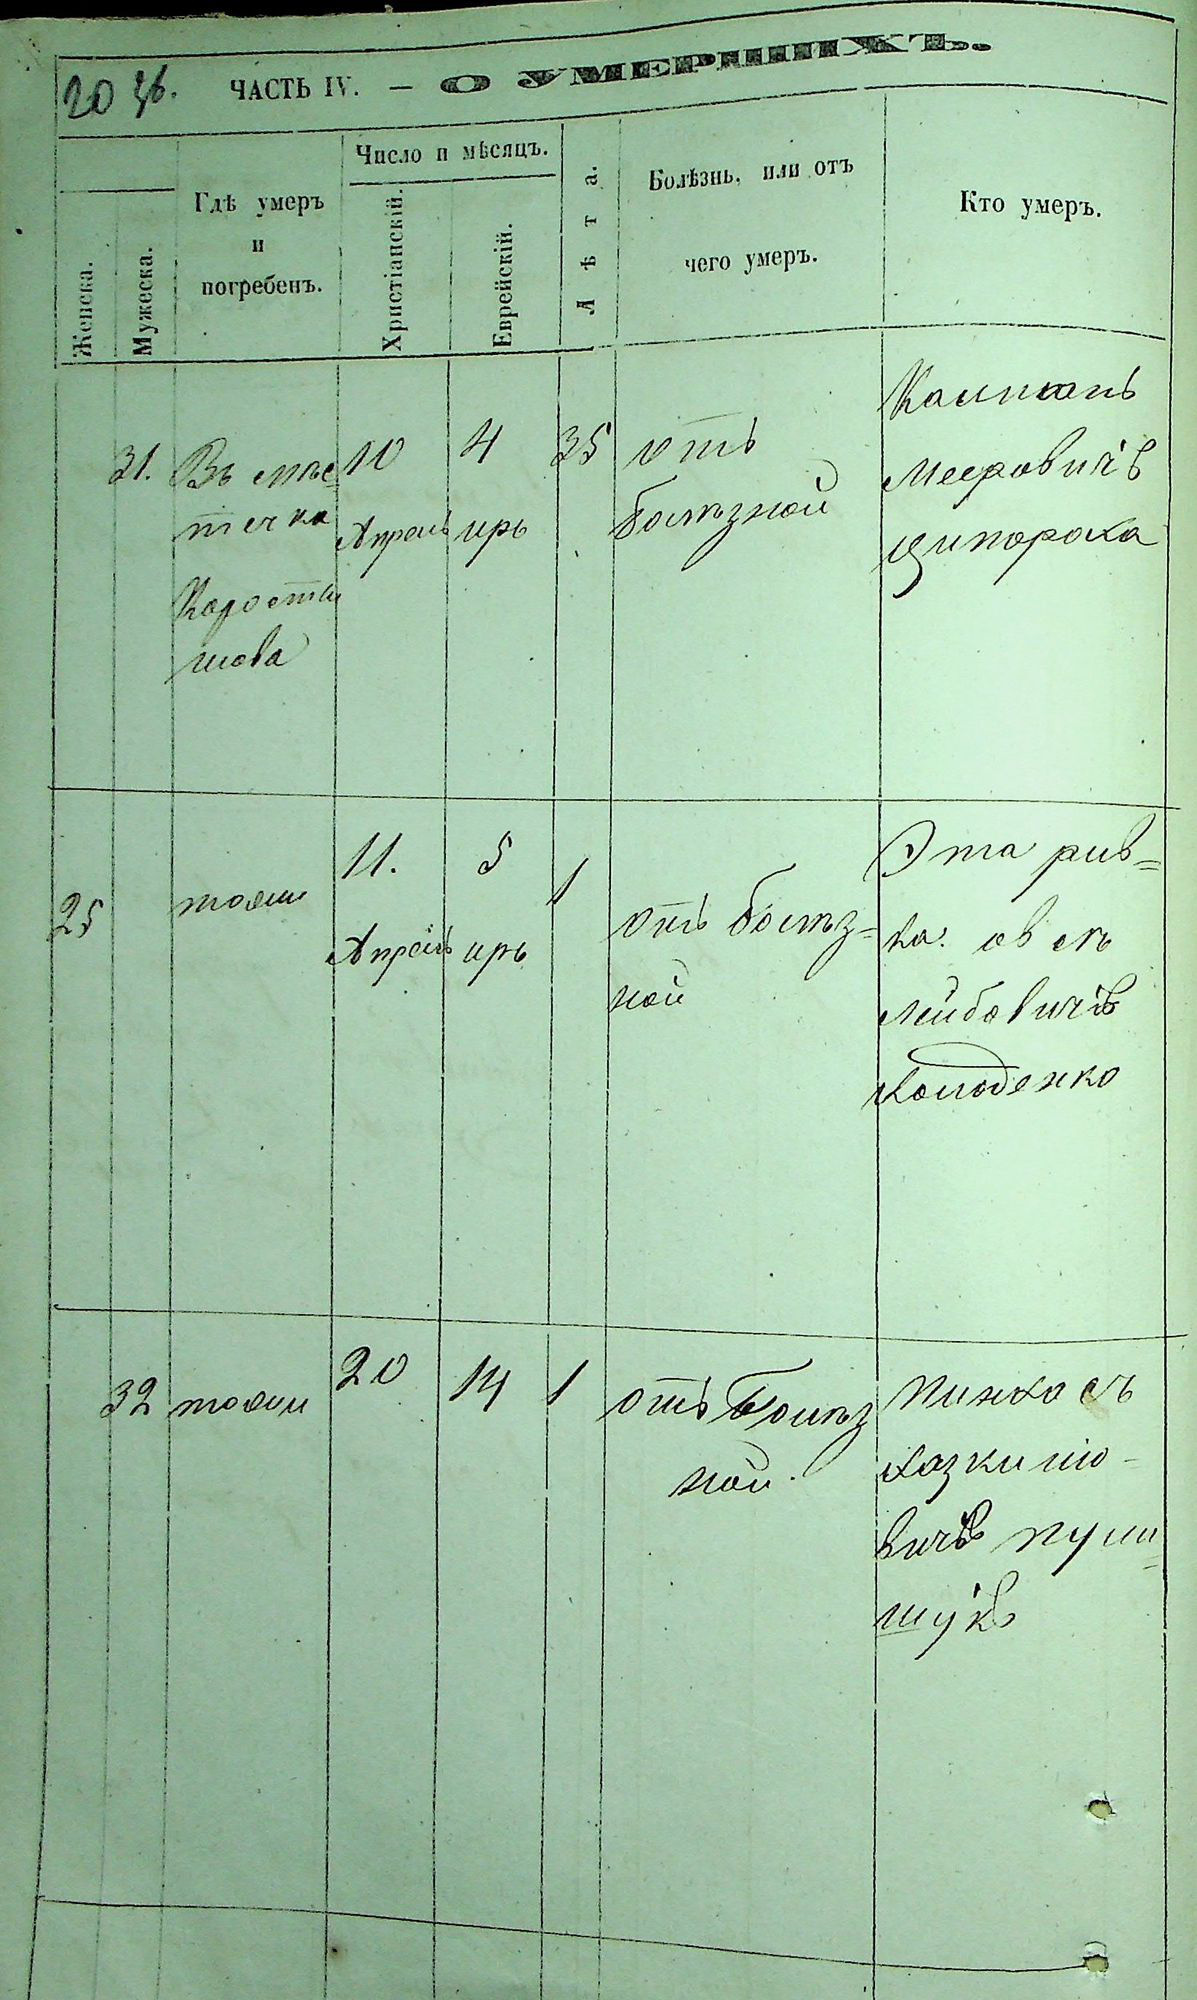 20 ЧАСТЬ IV. — О УМЕРШИХЪ.
Женска.
Мужеска.
Гдѣ умеръ
и
погребенъ.
Число и мѣсяцъ.
Христіанскій.
Еврейскій.
Лѣта.
Болѣзнь, или отъ
чего умеръ.
Кто умеръ.
31.
Въ мѣс-
течка
Коросты
шова
10
Апрель
4
иръ
35
отъ
болѣзной
Калманъ
Мееровичъ
Ципорока
25
тоже
11.
Апрель
5
иръ
1
отъ болѣз=
ной
Эта рив=
ка
Лейбовичъ
Колоденко
32
тоже
20
14
1
отъ Болѣз
ной.
Пинхосъ
Хазкилю-
вичъ
шукъ